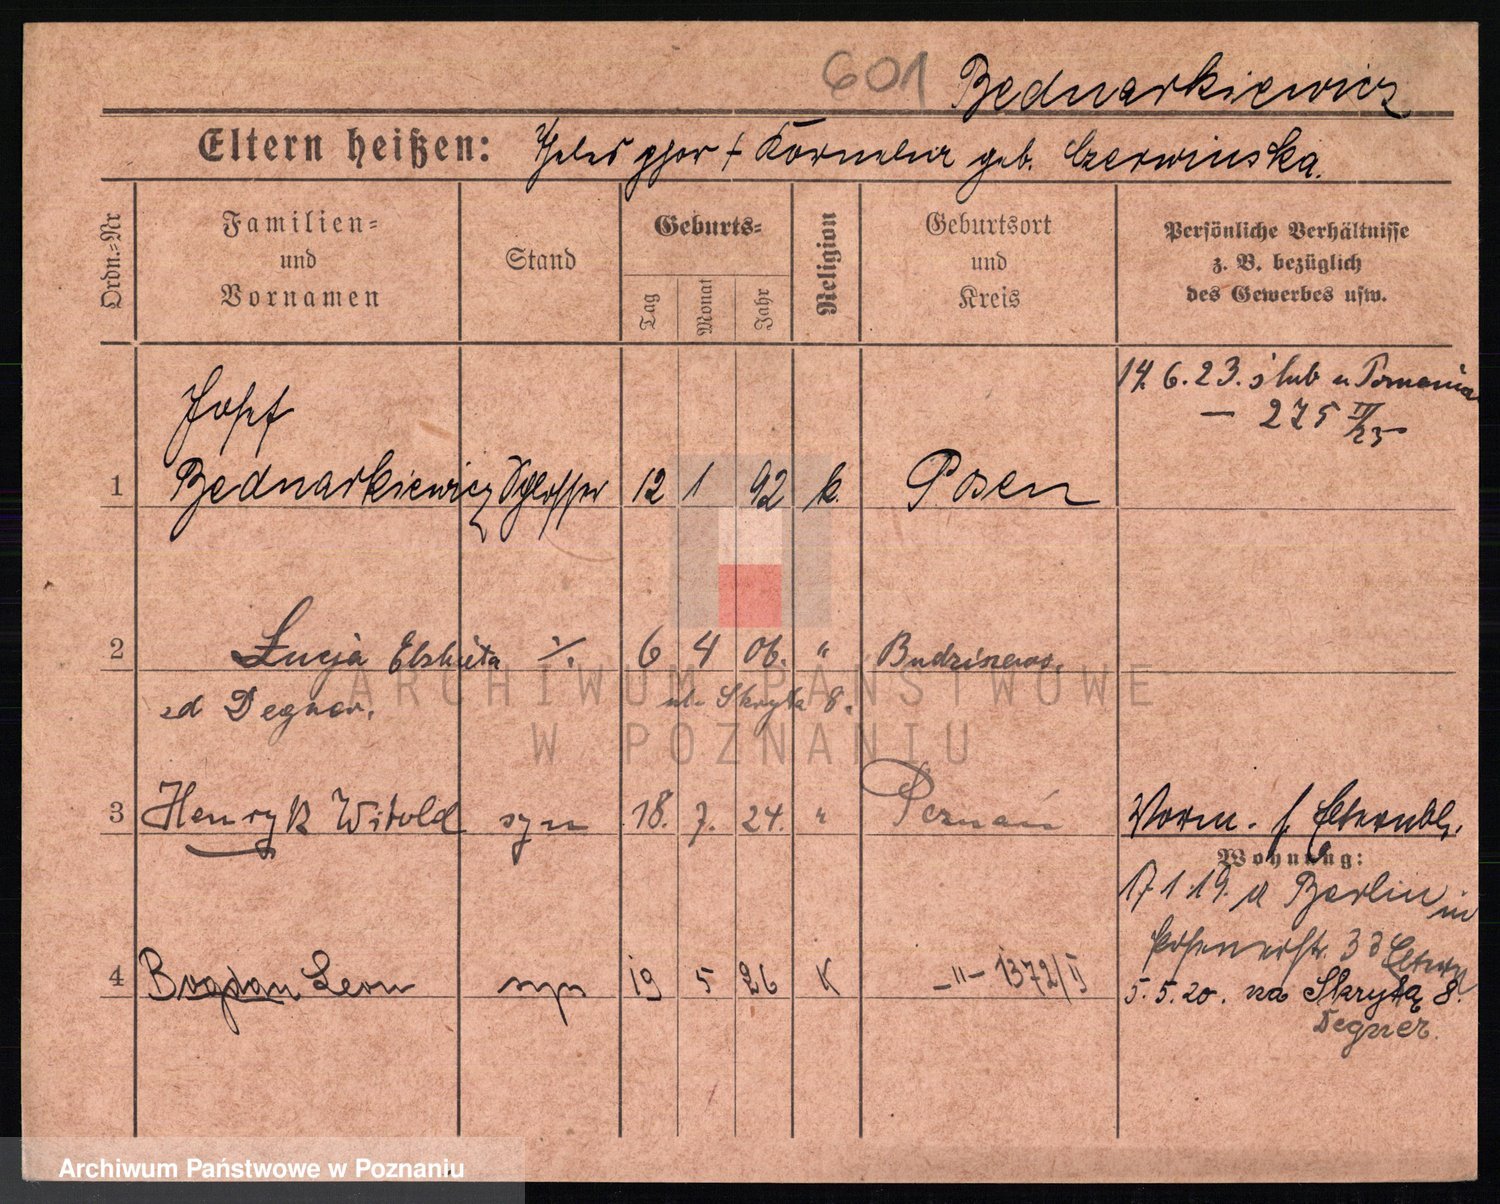 601 Bednarkiewicz
Eltern heißen: Telesphor + Kornelia geb. Czerwinska.
Ordn.=Nr
Familien=
und
Vornamen
Stand
Geburts=
Tag
Monat
Jahr
Religion
Geburtsort
und
Kreis
Persönliche Verhältnisse
z. B. bezüglich
des Gewerbes usw.
14. 6. 23. ślub u Poznaniu
— 275 II/25
Josef
1 Bednarkiewicz Schlosser 12 1 92 k. Posen
2 Łucja Elżbieta ż. 6 4 06. "
zd Degner. ul. Skryta 8.
3 Henryk Witold syn 18. 7. 24. " Poznań
Vorm. s. Elternbl.
Wohnung:
17 1 19. a Berlin in
Posenerstr. 33 Eltern
4 Bogdan Leon syn 19 5 26 K -"- 1372/II
5. 5. 20. na Skrytą 8.
Degner.
ARCHIWUM PAŃSTWOWE
W POZNANIU
Archiwum Państwowe w Poznaniu